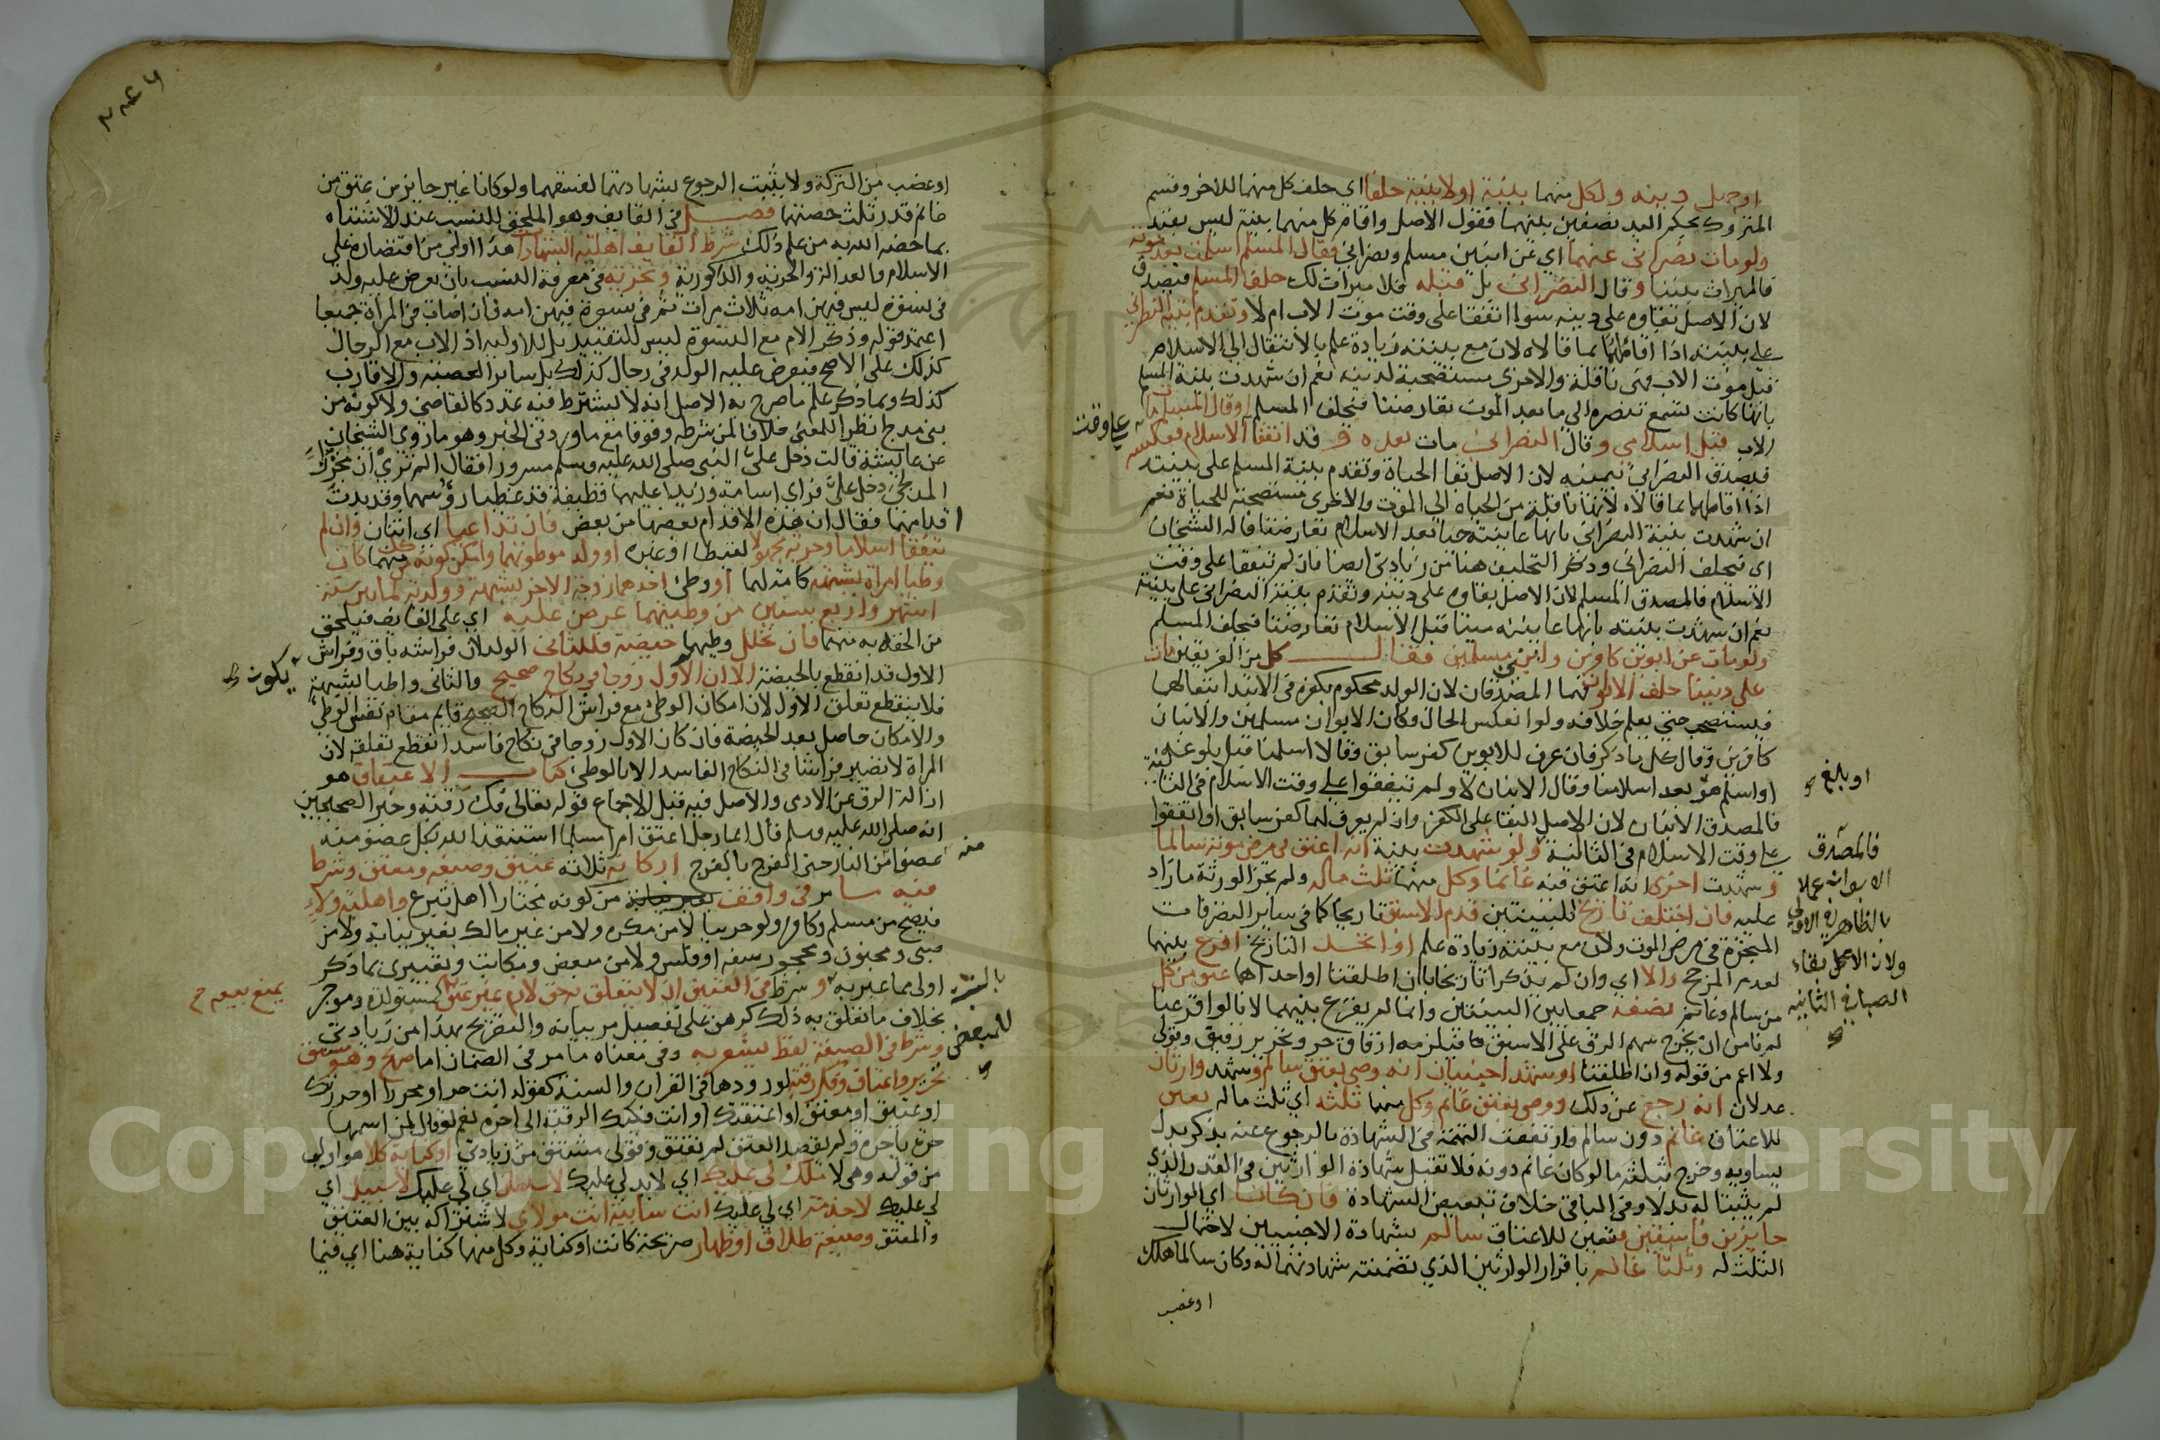 او جهل دينه ولكل منهما بينة او لا بينة حلفا اي حلف كل منهما للاخر وقسم
المتروك بحكم اليد نصفين بينهما فقول الاصل واقام كل منهما بينة ليس بقيد
ولو مات نصراني عنهما اي عن ابنين مسلم ونصراني فقال المسلم اسلمت بعد موته
فالميراث بيننا وقال النصراني بل قبله فلا ميراث لك حلف المسلم فيصدق
لان الاصل بقاوه على دينه سوا اتفقا على وقت موت الاب ام لا وتقدم بينة النصراني
على بينته اذا اقاماهما بما قالاه لان مع بينته زيادة علم بالانتقال الي الاسلام
قبل موت الاب فهي ناقلة والاخرى مستصحبة لدينه نعم ان شهدت بينة المسلم
بانها كانت تسمع تنصره الي ما بعد الموت تعارضتا فيحلف المسلم او قال المسلم مات
الاب قبل اسلامي وقال النصراني مات بعده وقد اتفقا الاسلام فعكسه
على وقت
فيصدق النصراني بيمينه لان الاصل بقا الحياة وتقدم بينة المسلم على بينته
اذا اقاماهما بما قالاه لانها ناقلة من الحياة الي الموت والاخرى مستصحبة للحياة نعم
ان شهدت بينة النصراني بانها عاينته حيا بعد الاسلام تعارضتا قاله الشيخان
اي فيحلف النصراني وذكر التحليف هنا من زيادتي ايضا فان لم يتفقا على وقت
الاسلام فالمصدق المسلم لان الاصل بقاوه على دينه وتقدم بينة النصراني على بينته
نعم ان شهدت بينته بانها عاينته ميتا قبل الاسلام تعارضتا فيحلف المسلم
ولو مات عن ابوين كافرين وابنين مسلمين فقال كل من الفريقين مات
على ديننا حلف الابوان فهما المصدقان لان الولد محكوم بكفره في الابتدا تبعا لهما
فيستصحب حتي يعلم خلافه ولو انعكس الحال وكان الابوان مسلمين والابنان
كافرين وقال كل ما ذكر فان عرف للابوين كفر سابق وقالا اسلمنا قبل بلوغه
او اسلم هو بعد اسلامنا وقال الابنان لا ولم يتفقوا على وقت الاسلام في الثانية
او بلغ
فالمصدق الابنان لان الاصل البقا على الكفر وان لم يعرف لهما كفر سابق او اتفقوا
على وقت الاسلام في الثالثة ولو شهدت بينة انه اعتق في مرض موته سالما
فالمصدق
الابوان عملا
بالظاهر في الاولى
ولان الاصل بقاء
الصبا في الثانية
وشهدت اخرى انه اعتق فيه غانما وكل منهما ثلث ماله ولم تجز الورثة ما زاد
عليه فان اختلف تاريخ للبينتين قدم الاسبق تاريخا كما في ساير التصرفات
المنجزة في مرض الموت ولان مع بينته زيادة علم او اتحد التاريخ اقرع بينهما
لعدم المرجح والا اي وان لم يذكرا تاريخا بان اطلقتا او احداهما عتق من كل
من سالم وغانم نصفه جمعا بين البينتين وانما لم يقرع بينهما لانا لو اقرعنا
لم نامن ان يخرج سهم الرق على الاسبق فيلزمه ارقاق حر وتحرير رقيق وقولي
والا اعم من قوله وان اطلقتا او شهد اجنبيان انه وصي بعتق سالم وشهد وارثان
عدلان انه رجع عن ذلك ووصي بعتق غانم وكل منهما ثلثه اي ثلث ماله تعين
للاعتاق غانم دون سالم وارتفعت التهمة في الشهادة بالرجوع عنه بذكر بدل
يساويه وخرج بثلثه ما لو كان غانم دونه فلا تقبل شهادة الوارثين في القدر الذي
لم يثبتا له بدلا وفي الباقي خلاف تبعيض الشهادة فان كانا اي الوارثان
حايزين فاسقين فتعين للاعتاق سالم بشهادة الاجنبيين لاحتمال
الثلث له وثلثا غانم باقرار الوارثين الذي تضمنته شهادتهما له وكان سالما هلك
او غصب
او غصب من التركة ولا يثبت الرجوع بشهادتهما لفسقهما ولو كانا غير حايزين عتق من
غانم قدر ثلث حصتهما فصل في القايف وهو الملحق للنسب عند الاشتباه
بما خصه الله به من علم ذلك شرط القايف اهلية الشهادات هذا اولى من اقتصاره على
الاسلام والعدالة والحرية والذكورية وتجربة في معرفة النسب بان يعرض عليه ولد
في نسوة ليس فيهن امه ثلاث مرات ثم في نسوة فيهن امه فان اصاب في المرات جميعا
اعتمد قوله وذكر الام مع النسوة ليس للتقييد بل للاولوية اذ الاب مع الرجال
كذلك على الاصح فيعرض عليه الولد في رجال كذلك بل ساير العصبة والاقارب
كذلك وبما ذكر علم ما صرح به الاصل انه لا يشترط فيه عدد كالقاضي ولا كونه من
بني مدلج نظرا للمعنى خلافا لمن شرطه وقوفا مع ما ورد في الخبر وهو ما روى الشيخان
عن عايشة قالت دخل علي النبي صلى الله عليه وسلم مسرورا فقال الم تري ان مجززا
المدلجي دخل علي فراي اسامة وزيدا عليهما قطيفة قد غطيا رؤسهما وقد بدت
اقدامهما فقال ان هذه الاقدام بعضها من بعض فان تداعيا اي اثنان وان لم
يتفقا اسلاما وحرية مجهولا لقيطا او غيره او ولد موطوئهما وامكن كونه من كل منهما كان
وطيا امراة بشبهة كامة لهما او وطي احدهما زوجة الاخر بشبهة وولدته لما بين ستة
اشهر واربع سنين من وطييهما عرض عليه اي على القايف فيلحق
من الحقه به منهما فان تخلل وطييهما حيضة فللثاني الولد لان فراشه باق وفراش
الاول قد انقطع بالحيضة الا ان يكون الاول زوجا في نكاح صحيح والثاني واطيا بشبهة
يكون
فلا ينقطع تعلق الاول لان امكان الوطي مع فراش النكاح الصحيح قايم مقام نفس الوطي
والامكان حاصل بعد الحيضة فان كان الاول زوجا في نكاح فاسد انقطع تعلقه لان
المراة لا تصير فراشا في النكاح الفاسد الا بالوطي كتاب الاعتاق هو
ازالة الرق عن الادمي والاصل فيه قبل الاجماع قوله تعالى فك رقبة وخبر الصحيحين
انه صلى الله عليه وسلم قال ايما رجل اعتق امرا مسلما استنقذ الله بكل عضو منه
عضوا من النار حتى الفرج بالفرج اركانه ثلاثة عتيق وصيغة ومعتق وشرط
منه
فيه ما مر في واقف من كونه مختارا اهل تبرع واهلية ولاء
فيصح من مسلم وكافر ولو حربيا لا من مكره ولا من غير مالك بغير نيابة ولا من
صبي ومجنون ومحجور سفه او فلس ولا من مبعض ومكاتب وتعبيري بما ذكر
اولى مما عبر به وشرط في العتيق ان لا يتعلق به حق لازم غير عتق كمستولدة وموجر
يمنع بيعه
بخلاف ما تعلق به ذلك كرهن على تفصيل مر بيانه والتصريح بهذا من زيادتي
وشرط في الصيغة لفظ يشعر به وفي معناه ما مر في الضمان اما صريح وهو مشتق
تحرير واعتاق وفك رقبة لورودها في القران والسنة كقوله انت حر او محرر او حررتك
او عتيق او معتق او اعتقتك او انت فكيك الرقبة الى اخره نعم لو قال لمن اسمها
حرة يا حرة ولم يقصد العتق لم تعتق وقولي مشتق من زيادتي او كناية كلا هو اولى
من قوله وهي لا ملك لي عليك اي لا يد لي عليك لا سلطان اي لي عليك لا سبيل اي
لي عليك لا خدمة اي لي عليك انت سايبة انت مولاي لاشتراكه بين العتيق
والمعتق وصيغة طلاق او ظهار صريحة كانت او كناية وكل منها كناية هنا اي فيما
Copy ng ersity